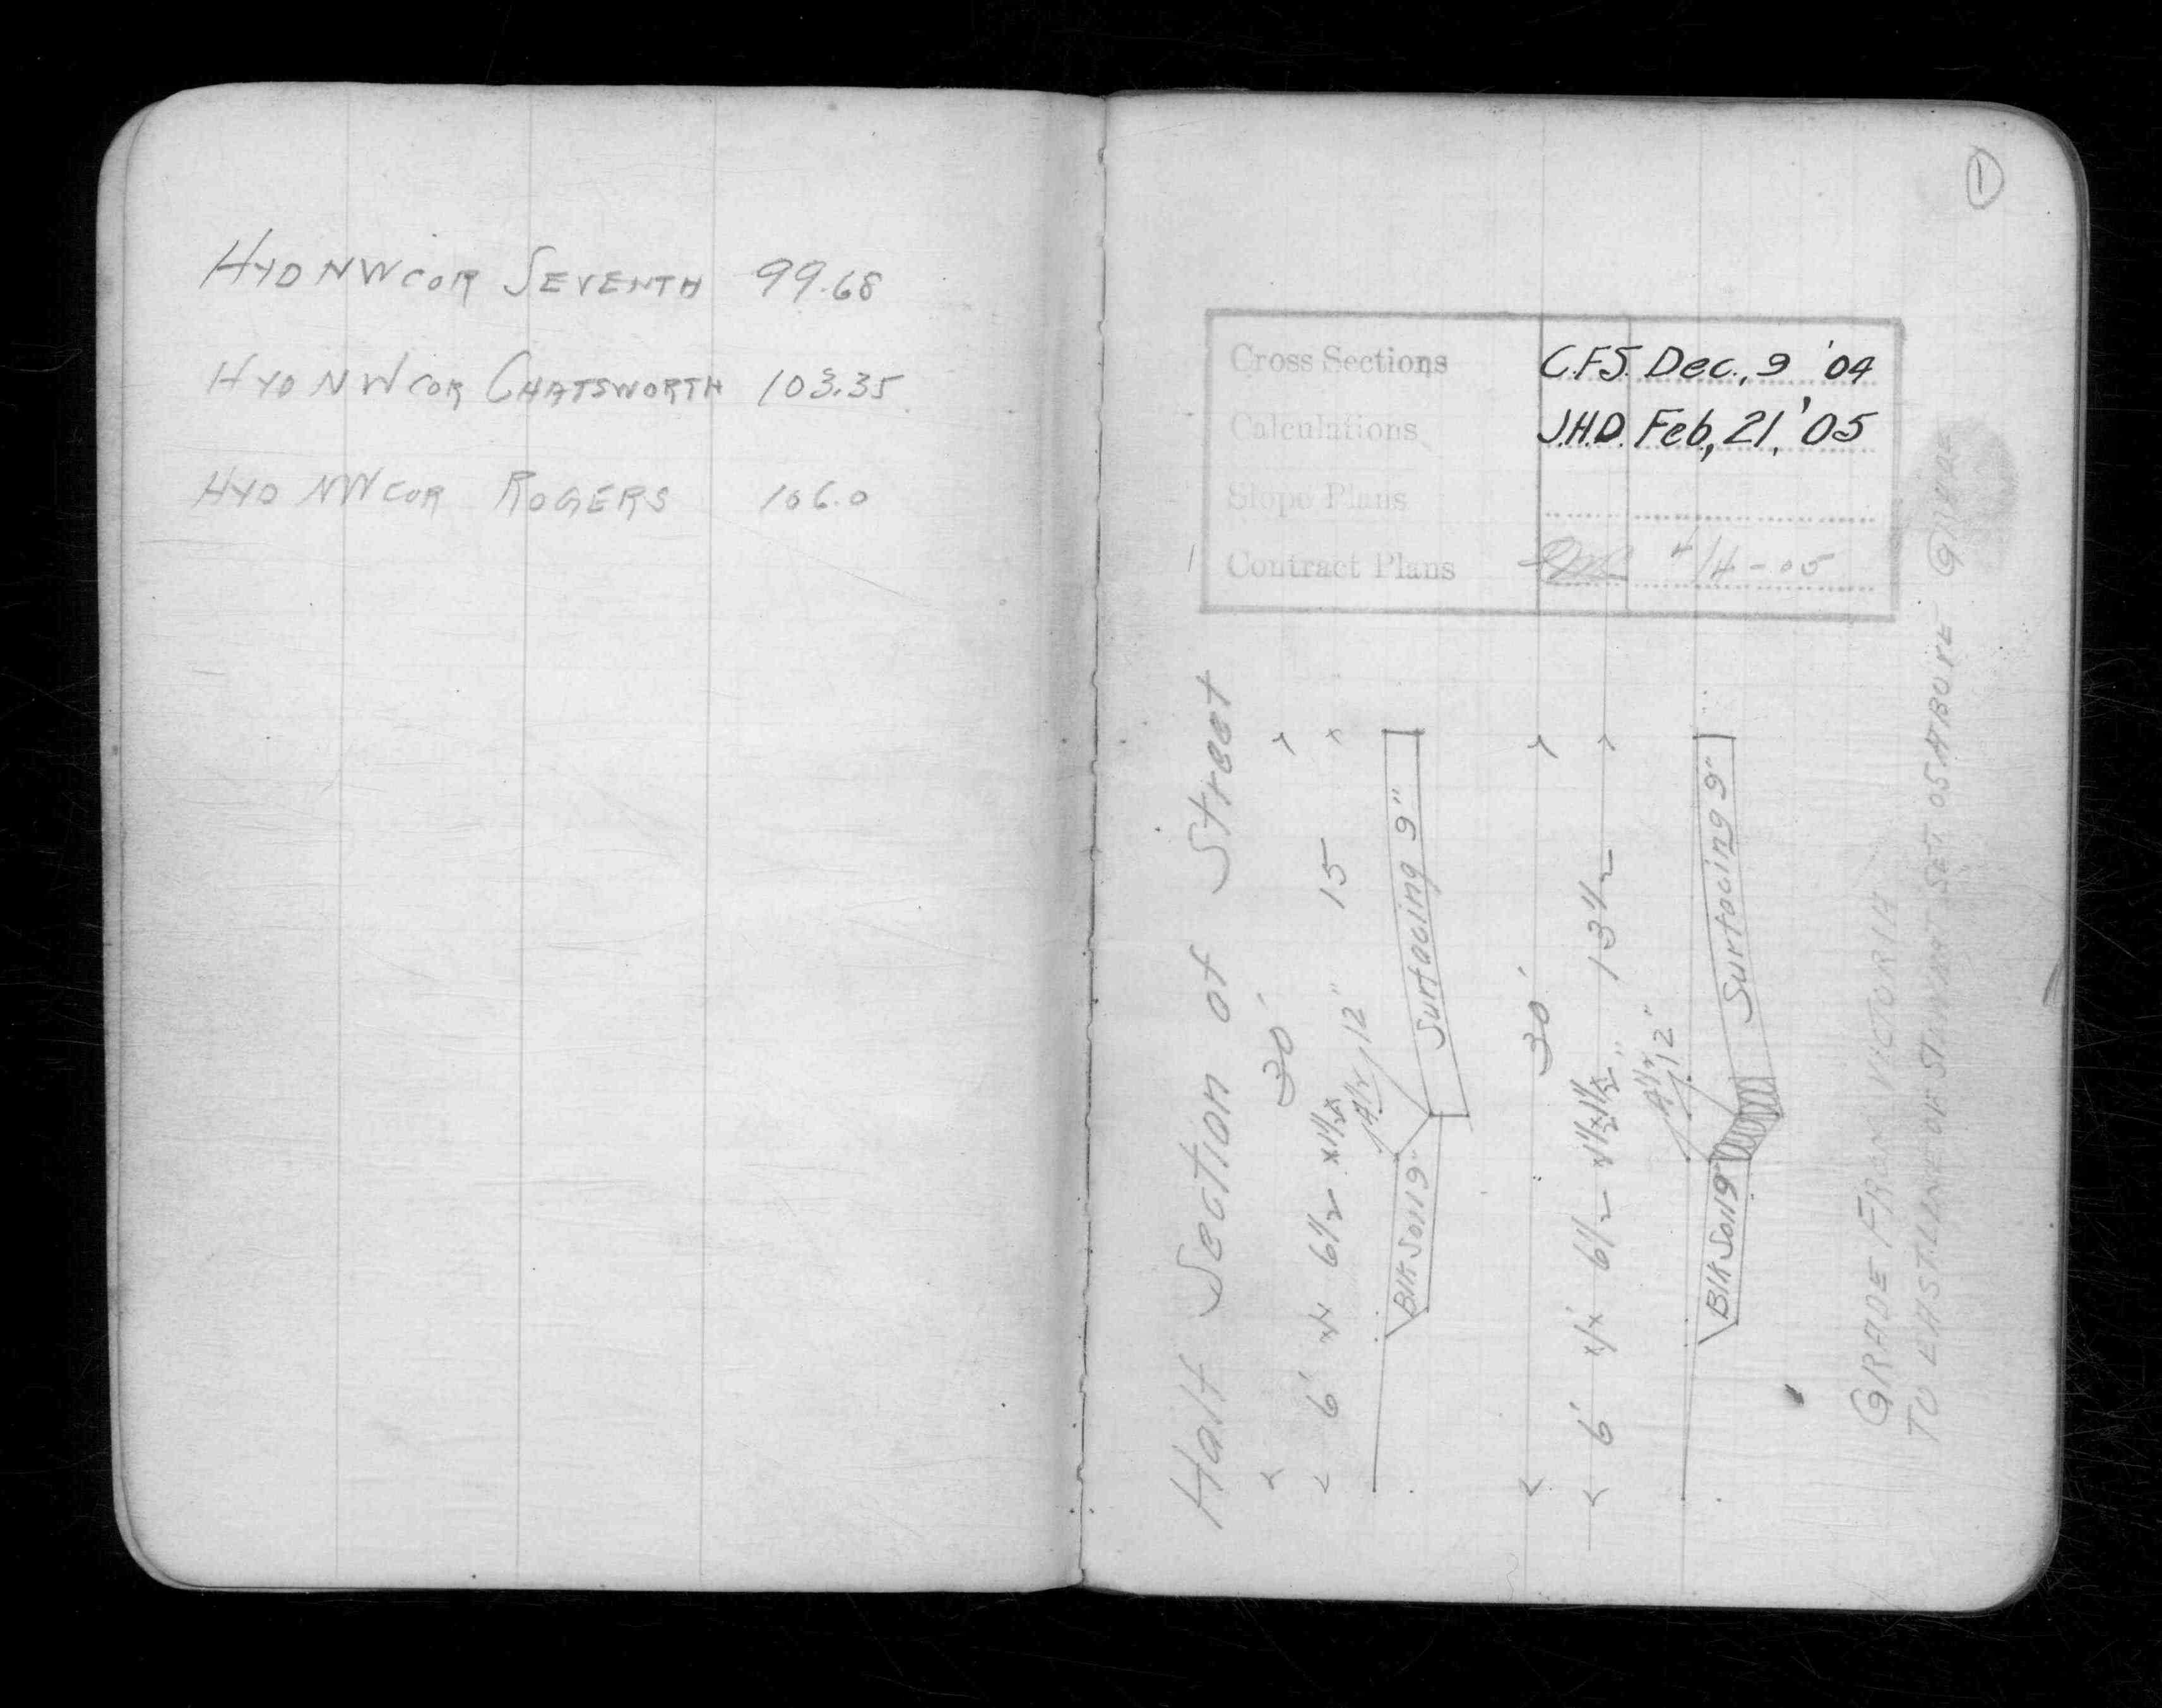 HYD NW COR SEVENTH 99.68
HYD NW COR CHATSWORTH 103.35
HYD NW COR ROGERS 106.0
1
Cross Sections C.F.J. Dec., 9 '04
Calculations J.H.D. Feb, 21, '05
Slope Plans
Contract Plans 4/4-05
Half Section of Street
30'
6' 1 6½ 1½ 15
A 1½ 12"
Blk Soil 9" Surfacing 9"
30'
6' 1' 6½ 1½ 1½ 13½
A 1½ 12"
Blk Soil 9" Surfacing 9"
GRADE FROM VICTORIA
TO EAST LINE OF ST. SET .05 ABOVE GRADE